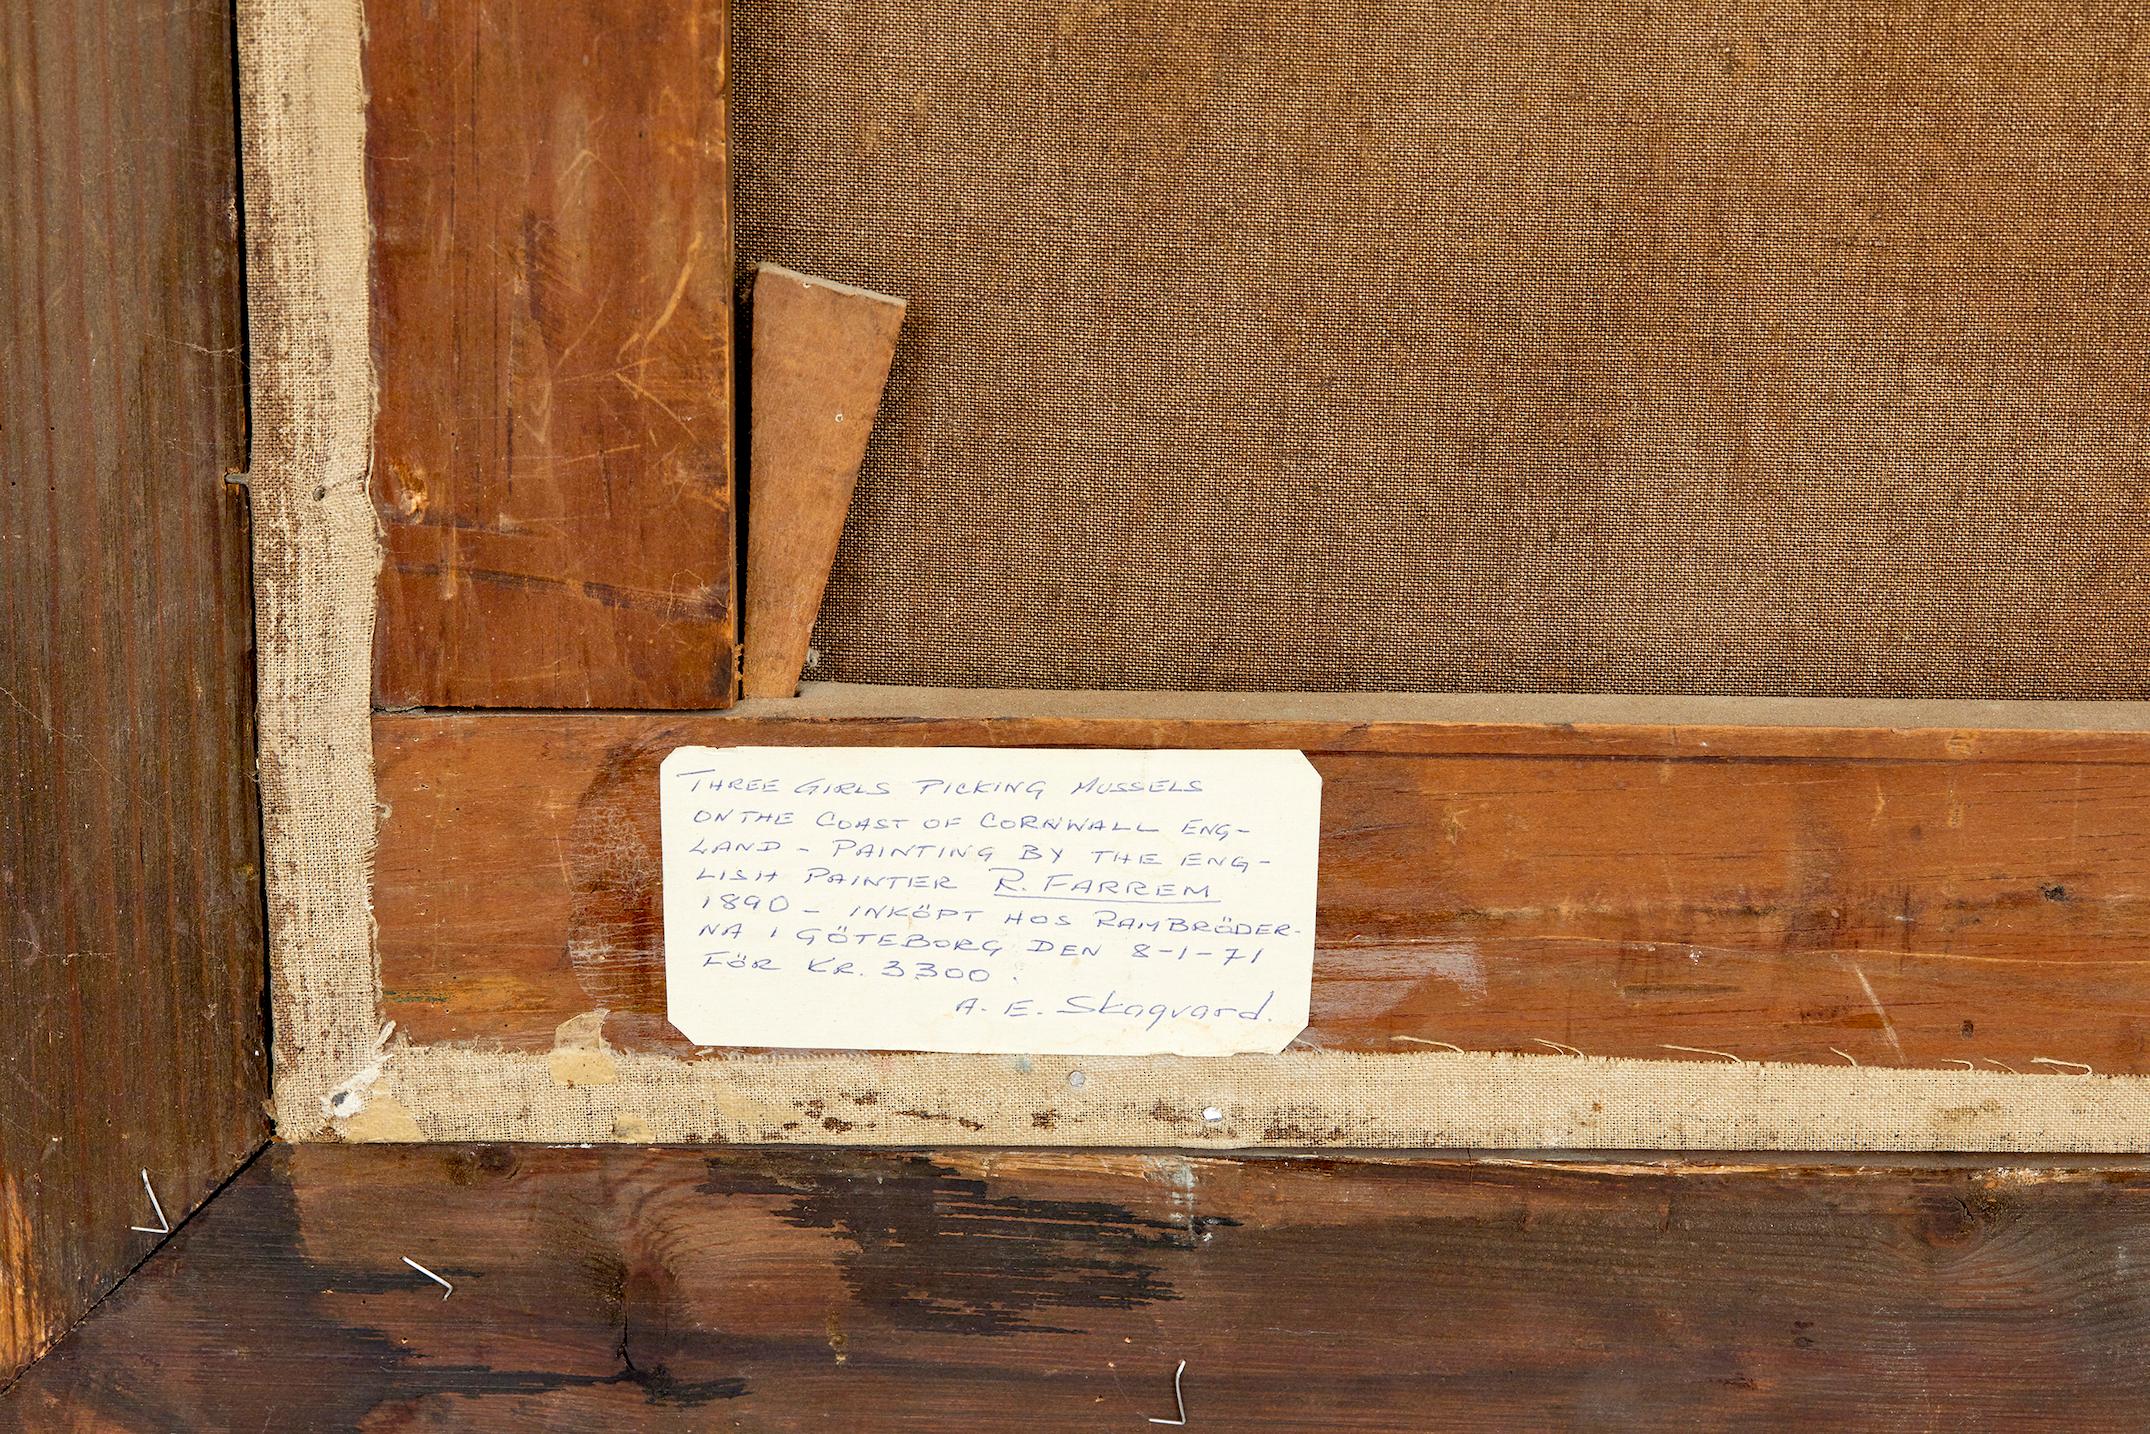 THREE GIRLS PICKING MUSSELS
ON THE COAST OF CORNWALL ENG-
LAND - PAINTING BY THE ENG-
LISH PAINTER R. FARREM
1890 - INKÖPT HOS RAMBRÖDER-
NA I GÖTEBORG DEN 8-1-71
FÖR KR. 3300.
A. E. Skagvard.